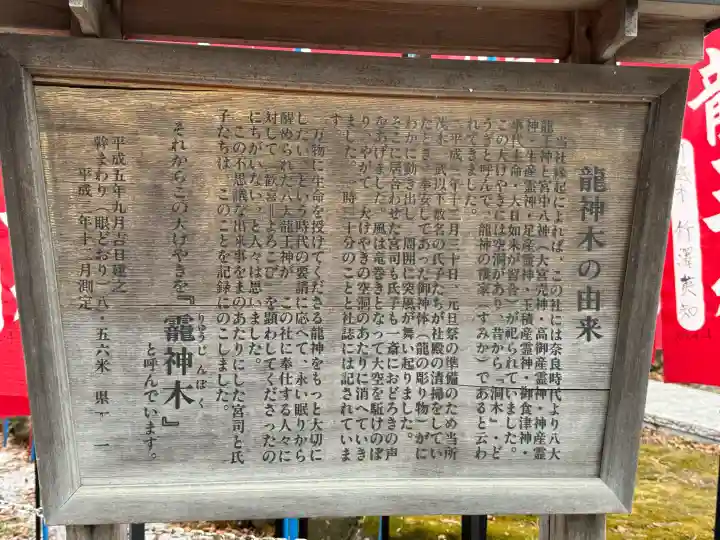 龍神木の由来
当社縁起によれば、この社には奈良時代より八大
龍王神と宮中八神(大宮売神・高御産霊神・神産霊
神・生産霊神・足産霊神・玉積産霊神・御食津神・
事代主命・大日如来が習合)が祀られていました。
この大けやきには空洞があり、昔から『洞木』・ど
うぎと呼んで、龍神の棲家(すみか)であると云わ
れてきました。
平成二年十二月三十日、元旦祭の準備のため当所
茂木 武以下数名の氏子たちが社殿の清掃をしてい
たとき、奉安してあった御神体(龍の彫り物)がに
わかに動き出し、周囲に突風が舞い起りました。
そこに居合わせた宮司も氏子も一斎におどろきの声
をあげました。風は竜巻きとなって大空を駈けのぼ
り、やがて、大けやきの空洞のあたりに消へていき
ました。一時二十分のことと社誌には記されていま
す。
万物に生命を授けてくださる龍神をもっと大切に
したいという時代の要請に応へて、永い眠りから
醒められた八大龍王神が、この社に奉仕する人々に
対して「歓喜=よろこび」を顕わしてくださったの
にちがいない、と人々は思いました。
この不思議な出来事をまのあたりにした宮司と氏
子たちは、このことを記録にのこしました。
それからこの大けやきを『龗神木』
りゅうじんぼく
と呼んでいます。
平成五年九月吉日建之
幹まわり(眼どおり)八・五六米 県下一
平成二年十二月測定
竹澤英知